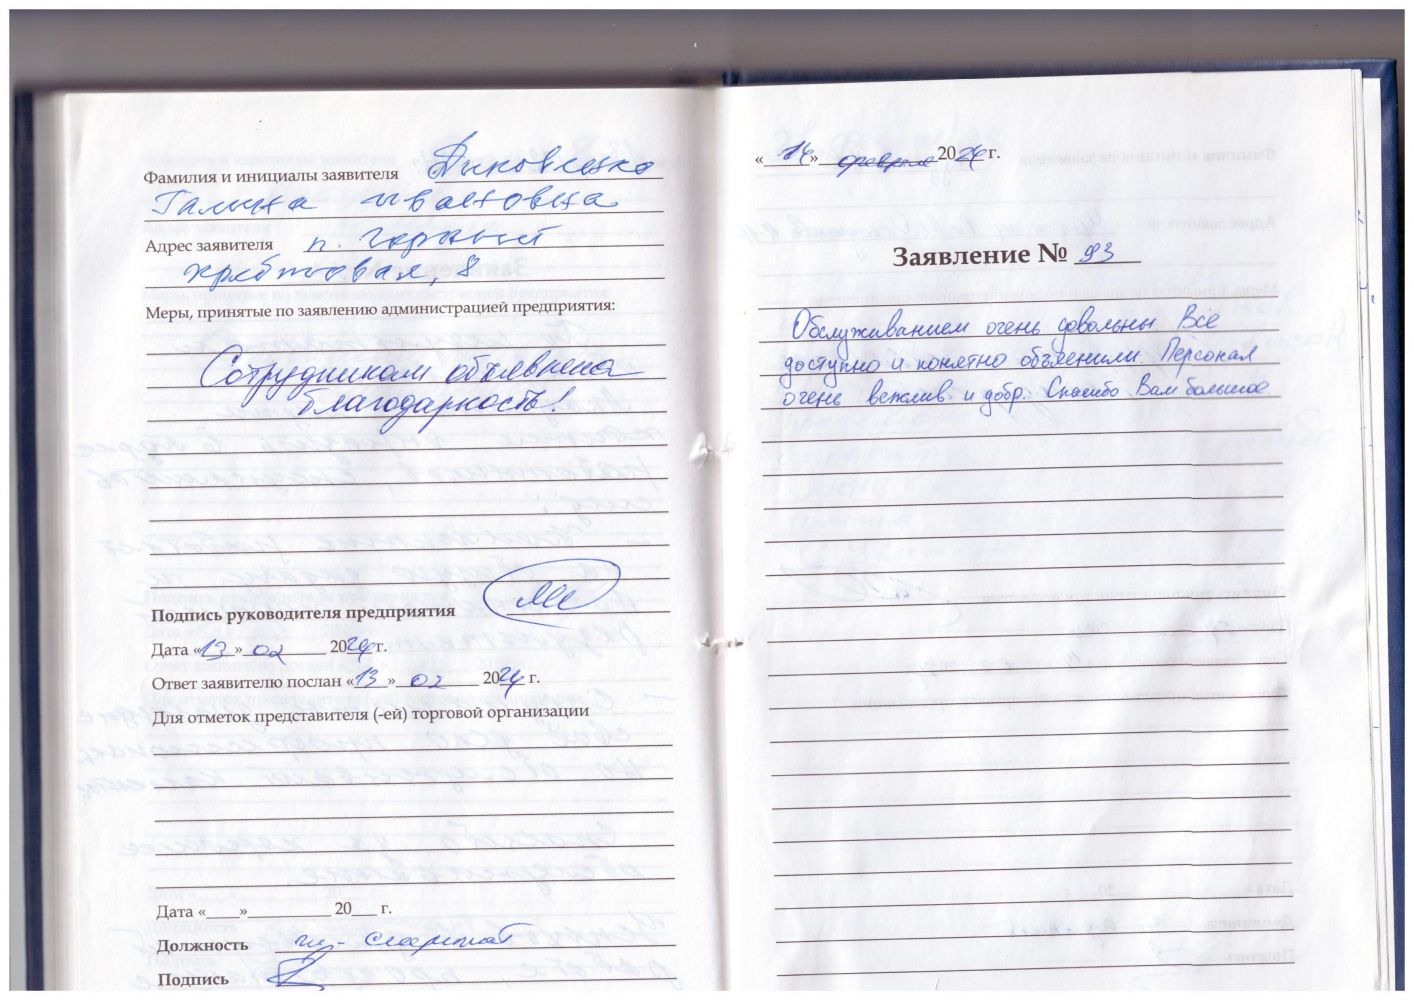 Фамилия и инициалы заявителя
Галина Ивановна
Адрес заявителя п. Горный
Хребтовая, 8
Меры, принятые по заявлению администрацией предприятия:
Сотрудникам объявлена
благодарность!
Подпись руководителя предприятия
Дата «13» 02 2024 г.
Ответ заявителю послан «13» 02 2024 г.
Для отметок представителя (-ей) торговой организации
Дата «____»__________ 20___ г.
Должность
Подпись
«14» февраля 2024 г.
Заявление № 93
Обслуживанием очень довольны Всё
доступно и понятно объяснили. Персонал
очень вежлив и добр. Спасибо Вам большое.